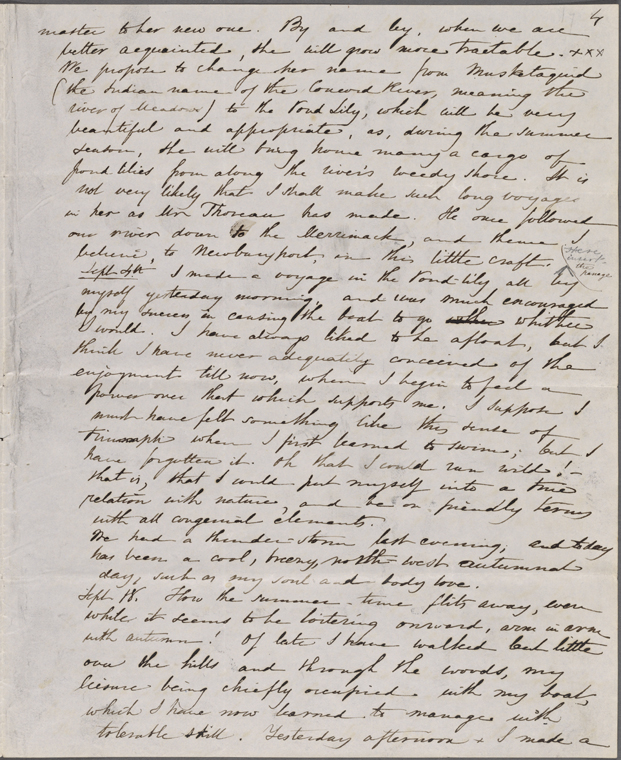 4
master to her new one. By and by, when we are
better acquainted, she will grow more tractable. +xx
We propose to change her name from Musketaquid
(the Indian name of the Concord River, meaning the
river of Meadows) to the Pond Lily, which will be very
beautiful and appropriate, as, during the summer
season, she will bring home many a cargo of
pond lilies from along the river's weedy shore. It is
not very likely that I shall make such long voyages
in her as Mr Thoreau has made. He once followed
our river down to the Merrimack, and thence I
believe, to Newburyport, in this little craft.
Here insert this passage
Sept 4th I made a voyage in the Pond Lily all by
myself yesterday morning, and was much encouraged
by my success in causing the boat to go whither
I would. I have always liked to be afloat, but I
think I have never adequately conceived of the
enjoyment till now, when I begin to feel a
power over that which supports me. I suppose I
must have felt something like this sense of
triumph when I first learned to swim; but I
have forgotten it. Oh that I could run wild! –
that is, that I could put myself into a true
relation with nature, and be on friendly terms
with all congenial elements.
We had a thunder-storm last evening; and today
has been a cool, breezy, north west autumnal
day, such as my soul and body love.
Sept. 18. How the summer time flits away, even
while it seems to be loitering onward, arm in arm
with autumn! Of late I have walked but little
over the hills and through the woods, my
leisure being chiefly occupied with my boat,
which I have now learned to manage with
tolerable skill. Yesterday afternoon + I made a